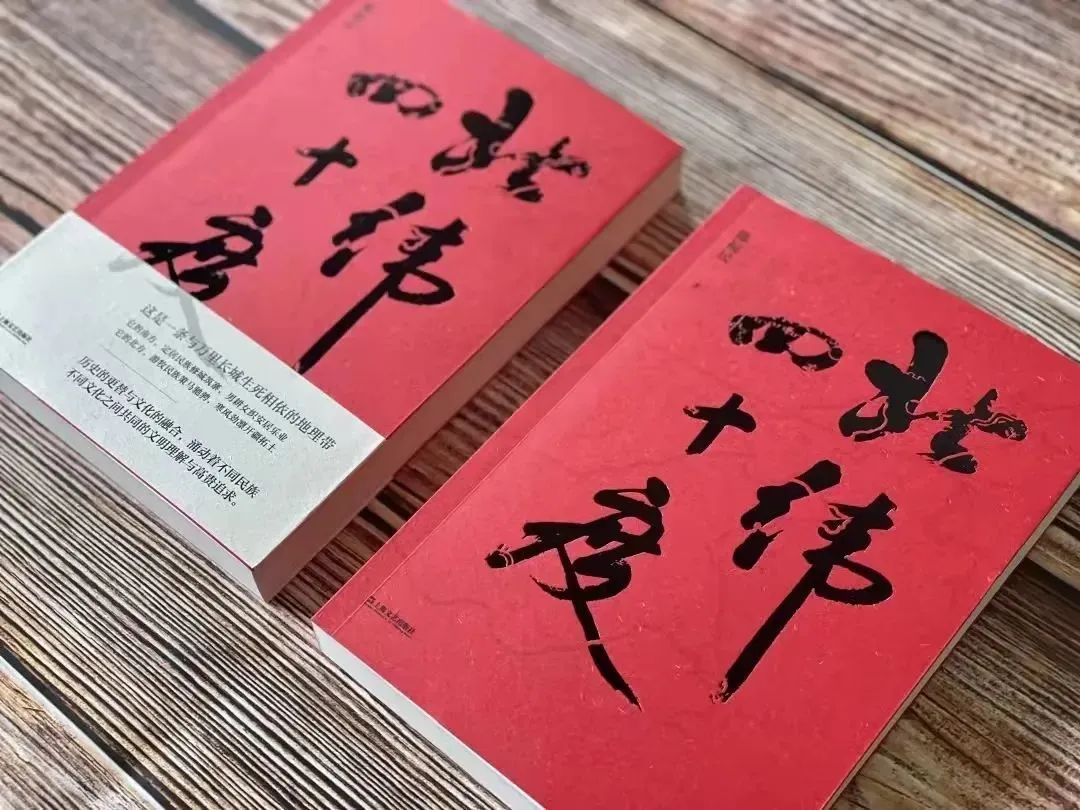 北纬
四十度
这是一条与万里长城生死相依的地理带
它的南方，定居民族修城筑寨，男耕女织安居乐业
它的北方，游牧民族策马驰骋，寒风劲凛开疆拓土
历史的更替与文化的融合，涌动着不同民族
不同文化之间共同的文明理解与高贵追求。
上海文艺出版社
北纬
四十度
上海文艺出版社